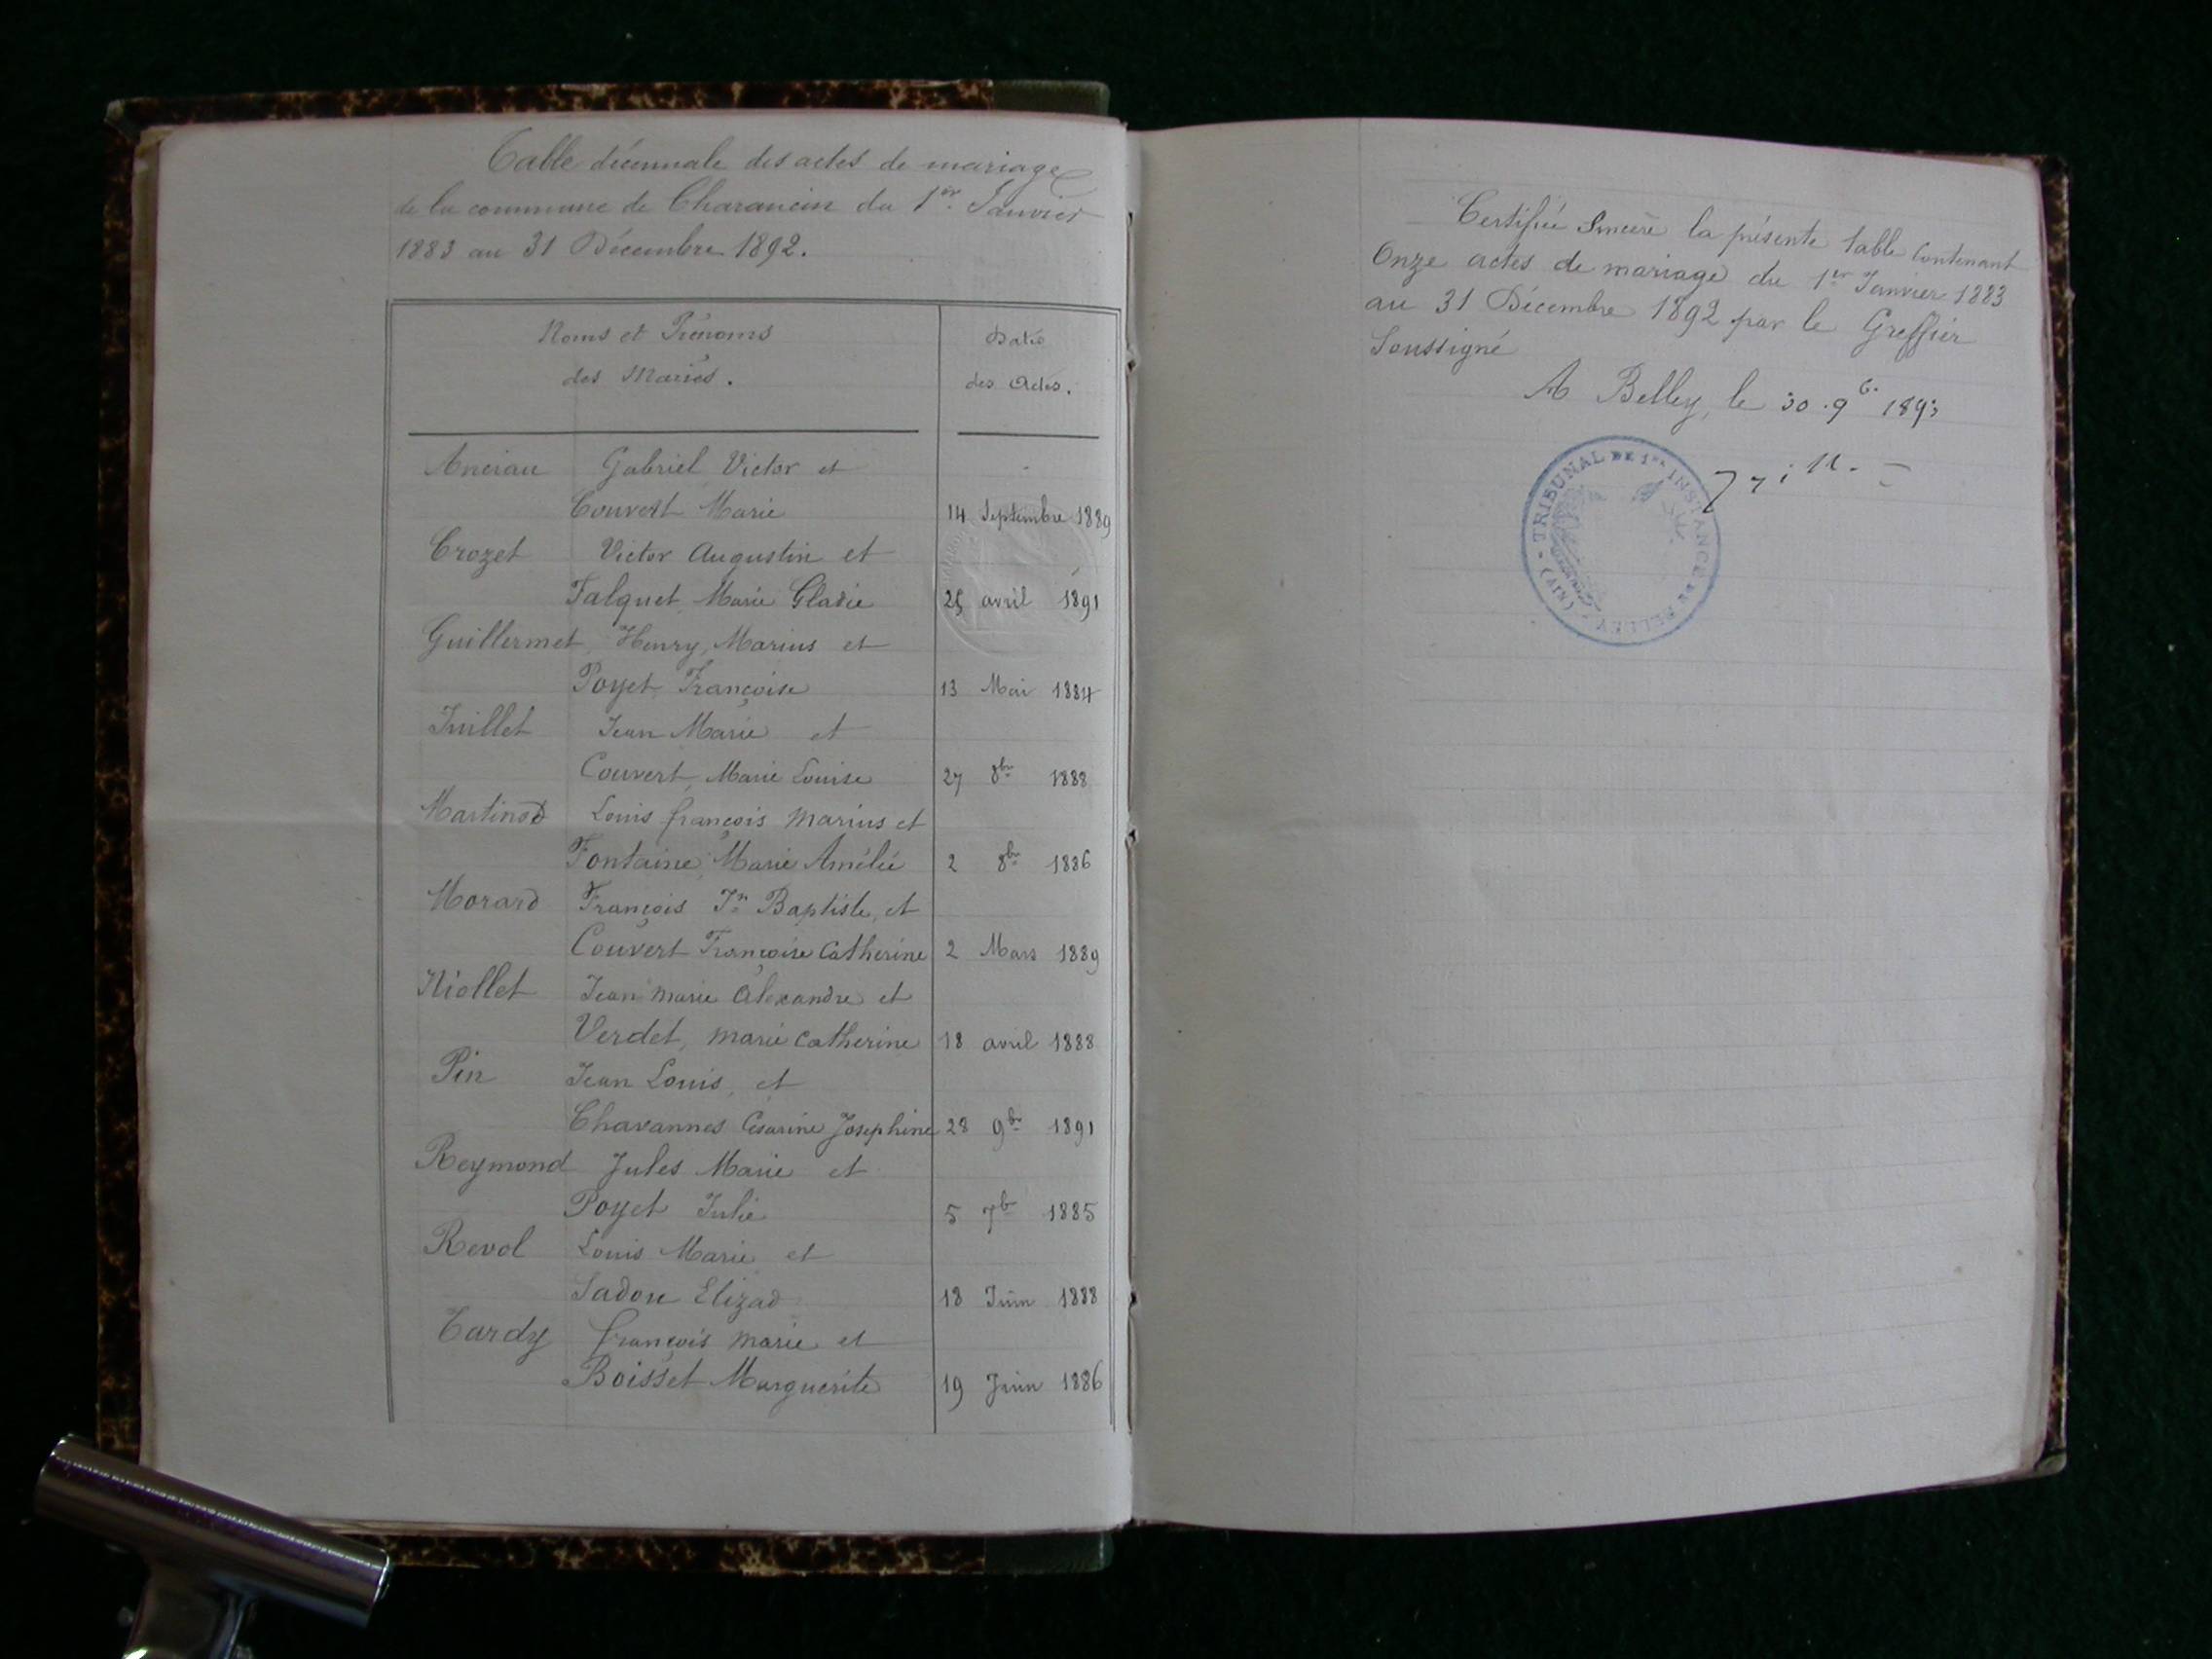 Table décennale des actes de mariage
de la commune de Charancin du 1er Janvier
1883 au 31 Décembre 1892.
Noms et Prénoms
des Mariés.
Date
des Actes.
Anciau Gabriel Victor et
Couvert Marie 14 Septembre 1889
Crozet Victor Augustin et
Falquet, Marie Gladie 25 avril 1891
Guillermet, Henry, Marius et
Poyet, Françoise 13 Mai 1884
Juillet Jean Marie et
Couvert, Marie Louise 27 8bre 1888
Martinod Louis françois Marius et
Fontaine, Marie Amélie 2 8bre 1886
Morard François Jn Baptiste, et
Couvert Françoise Catherine 2 Mars 1889
Niollet Jean Marie Alexandre et
Verdet, Marie Catherine 18 avril 1888
Pin Jean Louis, et
Chavannes Césarine Josephine 28 9bre 1891
Reymond Jules Marie et
Poyet Julie 5 7bre 1885
Revol Louis Marie et
Sadou Elizad 18 Juin 1888
Tardy françois Marie et
Boisset Marguerite 19 Juin 1886
Certifiée Sincère la présente table contenant
Onze actes de mariage du 1er Janvier 1883
au 31 Décembre 1892 par le Greffier
Soussigné
A Belley, le 30 9b. 1893
- TRIBUNAL DE 1re INSTANCE DE BELLEY - (AIN)